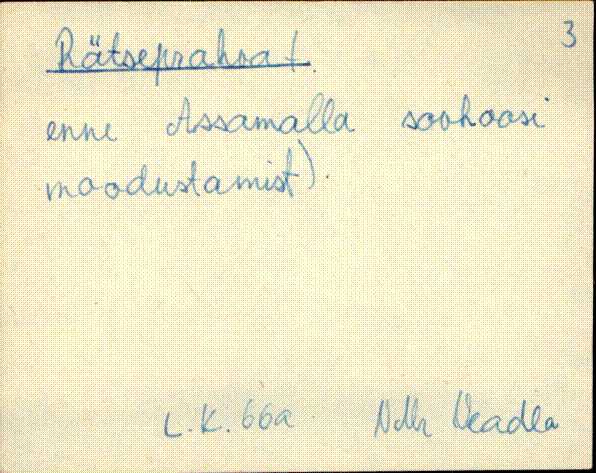 3
Rätseprahvat
enne Assamalla sovhoosi
moodustamist).
L.K. 66a Veadla